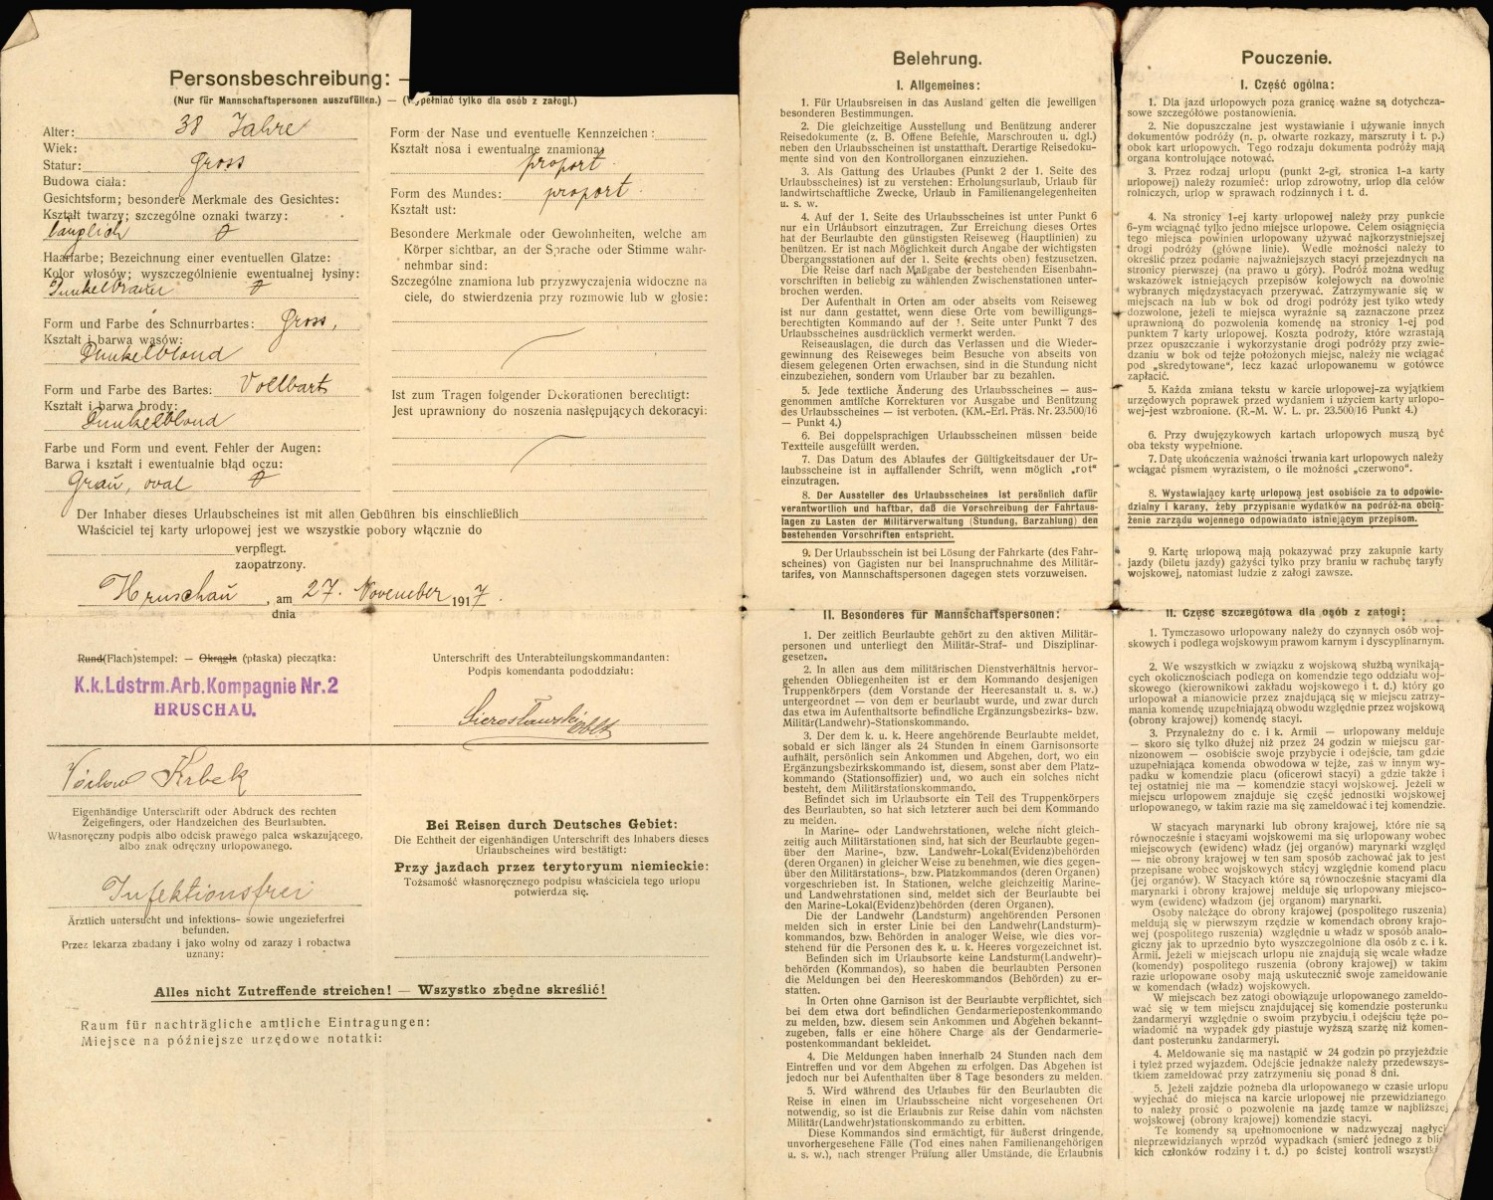 Personsbeschreibung: —
(Nur für Mannschaftspersonen auszufüllen.) — (Wypełniać tylko dla osób z załogi.)
Alter: 38 Jahre
Wiek:
Statur: Gross
Budowa ciała:
Gesichtsform; besondere Merkmale des Gesichtes:
Kształt twarzy; szczególne oznaki twarzy:
länglich
Haarfarbe; Bezeichnung einer eventuellen Glatze:
Kolor włosów; wyszczególnienie ewentualnej łysiny:
Dunkelbraun
Form und Farbe des Schnurrbartes: Gross,
Kształt i barwa wąsów:
Dunkelblond
Form und Farbe des Bartes: Vollbart
Kształt i barwa brody:
Dunkelblond
Farbe und Form und event. Fehler der Augen:
Barwa i kształt i ewentualnie błąd oczu:
Grau, oval
Form der Nase und eventuelle Kennzeichen:
Kształt nosa i ewentualne znamiona:
proport.
Form des Mundes: proport.
Kształt ust:
Besondere Merkmale oder Gewohnheiten, welche am
Körper sichtbar, an der Sprache oder Stimme wahr-
nehmbar sind:
Szczególne znamiona lub przyzwyczajenia widoczne na
ciele, do stwierdzenia przy rozmowie lub w głosie:
Ist zum Tragen folgender Dekorationen berechtigt:
Jest uprawniony do noszenia następujących dekoracyi:
Der Inhaber dieses Urlaubscheines ist mit allen Gebühren bis einschließlich
Właściciel tej karty urlopowej jest we wszystkie pobory włącznie do
verpflegt.
zaopatrzony.
Hruschau, am 27. November 1917.
dnia
Rund(Flach)stempel: — Okrągła (płaska) pieczątka:
K.k.Ldstrm.Arb.Kompagnie Nr.2
HRUSCHAU.
Unterschrift des Unterabteilungskommandanten:
Podpis komendanta pododdziału:
Krbek
Eigenhändige Unterschrift oder Abdruck des rechten
Zeigefingers, oder Handzeichen des Beurlaubten.
Własnoręczny podpis albo odcisk prawego palca wskazującego,
albo znak odręczny urlopowanego.
Infektionsfrei
Ärztlich untersucht und infektions- sowie ungezieferfrei
befunden.
Przez lekarza zbadany i jako wolny od zarazy i robactwa
uznany:
Bei Reisen durch Deutsches Gebiet:
Die Echtheit der eigenhändigen Unterschrift des Inhabers dieses
Urlaubscheines wird bestätigt:
Przy jazdach przez terytoryum niemieckie:
Tożsamość własnoręcznego podpisu właściciela tego urlopu
potwierdza się.
Alles nicht Zutreffende streichen! — Wszystko zbędne skreślić!
Raum für nachträgliche amtliche Eintragungen:
Miejsce na późniejsze urzędowe notatki:
Belehrung.
I. Allgemeines:
1. Für Urlaubsreisen in das Ausland gelten die jeweiligen
besonderen Bestimmungen.
2. Die gleichzeitige Ausstellung und Benützung anderer
Reisedokumente (z. B. Offene Befehle, Marschrouten u. dgl.)
neben den Urlaubsscheinen ist unstatthaft. Derartige Reisedoku-
mente sind von den Kontrollorganen einzuziehen.
3. Als Gattung des Urlaubes (Punkt 2 der 1. Seite des
Urlaubsscheines) ist zu verstehen: Erholungsurlaub, Urlaub für
landwirtschaftliche Zwecke, Urlaub in Familienangelegenheiten
u. s. w.
4. Auf der 1. Seite des Urlaubsscheines ist unter Punkt 6
nur ein Urlaubsort einzutragen. Zur Erreichung dieses Ortes
hat der Beurlaubte den günstigsten Reiseweg (Hauptlinien) zu
benützen. Er ist nach Möglichkeit durch Angabe der wichtigsten
Übergangsstationen auf der 1. Seite (rechts oben) festzusetzen.
Die Reise darf nach Maßgabe der bestehenden Eisenbahn-
vorschriften in beliebig zu wählenden Zwischenstationen unter-
brochen werden.
Der Aufenthalt in Orten am oder abseits vom Reiseweg
ist nur dann gestattet, wenn diese Orte vom bewilligungs-
berechtigten Kommando auf der 1. Seite unter Punkt 7 des
Urlaubsscheines ausdrücklich vermerkt werden.
Reiseauslagen, die durch das Verlassen und die Wieder-
gewinnung des Reiseweges beim Besuche von abseits von
diesem gelegenen Orten erwachsen, sind in die Stundung nicht
einzubeziehen, sondern vom Urlauber bar zu bezahlen.
5. Jede textliche Änderung des Urlaubsscheines — aus-
genommen amtliche Korrekturen vor Ausgabe und Benützung
des Urlaubsscheines — ist verboten. (KM.-Erl. Präs. Nr. 23.500/16
— Punkt 4.)
6. Bei doppelsprachigen Urlaubsscheinen müssen beide
Textteile ausgefüllt werden.
7. Das Datum des Ablaufes der Gültigkeitsdauer der Ur-
laubsscheine ist in auffallender Schrift, wenn möglich „rot“
einzutragen.
8. Der Aussteller des Urlaubsscheines ist persönlich dafür
verantwortlich und haftbar, daß die Vorschreibung der Fahrtaus-
lagen zu Lasten der Militärverwaltung (Stundung, Barzahlung) den
bestehenden Vorschriften entspricht.
9. Der Urlaubsschein ist bei Lösung der Fahrkarte (des Fahr-
scheines) von Gagisten nur bei Inanspruchnahme des Militär-
tarifes, von Mannschaftspersonen dagegen stets vorzuweisen.
II. Besonderes für Mannschaftspersonen:
1. Der zeitlich Beurlaubte gehört zu den aktiven Militär-
personen und unterliegt den Militär-Straf- und Disziplinar-
gesetzen.
2. In allen aus dem militärischen Dienstverhältnis hervor-
gehenden Obliegenheiten ist er dem Kommando desjenigen
Truppenkörpers (dem Vorstande der Heeresanstalt u. s. w.)
untergeordnet — von dem er beurlaubt wurde, und zwar durch
das etwa im Aufenthaltsorte befindliche Ergänzungsbezirks- bzw.
Militär(Landwehr)-Stationskommando.
3. Der dem k. u. k. Heere angehörende Beurlaubte meldet,
sobald er sich länger als 24 Stunden in einem Garnisonsorte
aufhält, persönlich sein Ankommen und Abgehen, dort, wo ein
Ergänzungsbezirkskommando ist, diesem, sonst aber dem Platz-
kommando (Stationsoffizier) und, wo auch ein solches nicht
besteht, dem Militärstationskommando.
Befindet sich im Urlaubsorte ein Teil des Truppenkörpers
des Beurlaubten, so hat sich letzterer auch bei dem Kommando
zu melden.
In Marine- oder Landwehrstationen, welche nicht gleich-
zeitig auch Militärstationen sind, hat sich der Beurlaubte gegen-
über den Marine-, bzw. Landwehr-Lokal(Evidenz)behörden
(deren Organen) in gleicher Weise zu benehmen, wie dies gegen-
über den Militärstations-, bzw. Platzkommandos (deren Organen)
vorgeschrieben ist. In Stationen, welche gleichzeitig Marine-
und Landwehrstationen sind, meldet sich der Beurlaubte bei
den Marine-Lokal(Evidenz)behörden (deren Organen).
Die der Landwehr (Landsturm) angehörenden Personen
melden sich in erster Linie bei den Landwehr(Landsturm)-
kommandos, bzw. Behörden in analoger Weise, wie dies vor-
stehend für die Personen des k. u. k. Heeres vorgezeichnet ist.
Befinden sich im Urlaubsorte keine Landsturm(Landwehr)-
behörden (Kommandos), so haben die beurlaubten Personen
die Meldungen bei den Heereskommandos (Behörden) zu er-
statten.
In Orten ohne Garnison ist der Beurlaubte verpflichtet, sich
bei dem etwa dort befindlichen Gendarmeriepostenkommando
zu melden, bzw. diesem sein Ankommen und Abgehen bekannt-
zugeben, falls er eine höhere Charge als der Gendarmerie-
postenkommandant bekleidet.
4. Die Meldungen haben innerhalb 24 Stunden nach dem
Eintreffen und vor dem Abgehen zu erfolgen. Das Abgehen ist
jedoch nur bei Aufenthalten über 8 Tage besonders zu melden.
5. Wird während des Urlaubes für den Beurlaubten die
Reise in einen im Urlaubsscheine nicht vorgesehenen Ort
notwendig, so ist die Erlaubnis zur Reise dahin vom nächsten
Militär(Landwehr)stationskommando zu erbitten.
Diese Kommandos sind ermächtigt, für äußerst dringende,
unvorhergesehene Fälle (Tod eines nahen Familienangehörigen
u. s. w.), nach strenger Prüfung aller Umstände, die Erlaubnis
Pouczenie.
I. Część ogólna:
1. Dla jazd urlopowych poza granicę ważne są dotychcza-
sowe szczegółowe postanowienia.
2. Nie dopuszczalne jest wystawianie i używanie innych
dokumentów podróży (n. p. otwarte rozkazy, marszruty i t. p.)
obok kart urlopowych. Tego rodzaju dokumenta podróży mają
organa kontrolujące notować.
3. Przez rodzaj urlopu (punkt 2-gi, stronica 1-a karty
urlopowej) należy rozumieć: urlop zdrowotny, urlop dla celów
rolniczych, urlop w sprawach rodzinnych i t. d.
4. Na stronicy 1-ej karty urlopowej należy przy punkcie
6-ym wciągnąć tylko jedno miejsce urlopowe. Celem osiągnięcia
tego miejsca powinien urlopowany używać najkorzystniejszej
drogi podróży (główne linie). Wedle możności należy to
określić przez podanie najważniejszych stacyi przejezdnych na
stronicy pierwszej (na prawo u góry). Podróż można według
wskazówek istniejących przepisów kolejowych na dowolnie
wybranych międzystacyach przerywać. Zatrzymywanie się w
miejscach na lub w bok od drogi podróży jest tylko wtedy
dozwolone, jeżeli te miejsca wyraźnie są zaznaczone przez
uprawnioną do pozwolenia komendę na stronicy 1-ej pod
punktem 7 karty urlopowej. Koszta podróży, które wzrastają
przez opuszczanie i wykorzystanie drogi podróży przy zwie-
dzaniu w bok od tejże położonych miejsc, należy nie wciągać
pod „skredytowane“, lecz kazać urlopowanemu w gotówce
zapłacić.
5. Każda zmiana tekstu w karcie urlopowej-za wyjątkiem
urzędowych poprawek przed wydaniem i użyciem karty urlopo-
wej-jest wzbronione. (R.-M. W. L. pr. 23.500/16 Punkt 4.)
6. Przy dwujęzykowych kartach urlopowych muszą być
oba teksty wypełnione.
7. Datę ukończenia ważności trwania kart urlopowych należy
wciągać pismem wyrazistem, o ile możności „czerwono“.
8. Wystawiający kartę urlopową jest osobiście za to odpowie-
dzialny i karany, żeby przypisanie wydatków na podróż-na obcią-
żenie zarządu wojennego odpowiadało istniejącym przepisom.
9. Kartę urlopową mają pokazywać przy zakupnie karty
jazdy (biletu jazdy) gażyści tylko przy braniu w rachubę taryfy
wojskowej, natomiast ludzie z załogi zawsze.
II. Część szczegółowa dla osób z załogi:
1. Tymczasowo urlopowany należy do czynnych osób woj-
skowych i podlega wojskowym prawom karnym i dyscyplinarnym.
2. We wszystkich w związku z wojskową służbą wynikają-
cych okolicznościach podlega on komendzie tego oddziału woj-
skowego (kierownikowi zakładu wojskowego i t. d.) który go
urlopował a mianowicie przez znajdującą się w miejscu zatrzy-
mania komendę uzupełniającą obwodu względnie przez wojskową
(obrony krajowej) komendę stacyi.
3. Przynależny do c. i k. Armii — urlopowany melduje
— skoro się tylko dłużej niż przez 24 godzin w miejscu gar-
nizonowem — osobiście swoje przybycie i odejście, tam gdzie
uzupełniająca komenda obwodowa w tejże, zaś w innym wy-
padku w komendzie placu (oficerowi stacyi) a gdzie także i
tej ostatniej nie ma — komendzie stacyi wojskowej. Jeżeli w
miejscu urlopowem znajduje się część jednostki wojskowej
urlopowanego, w takim razie ma się zameldować i tej komendzie.
W stacyach marynarki lub obrony krajowej, które nie są
równocześnie i stacyami wojskowemi ma się urlopowany wobec
miejscowych (ewidenc) władz (jej organów) marynarki względ
— nie obrony krajowej w ten sam sposób zachować jak to jest
przepisane wobec wojskowych stacyj względnie komend placu
(jej organów). W Stacyach które są równocześnie stacyami dla
marynarki i obrony krajowej melduje się urlopowany miejsco-
wym (ewidenc) władzom (jej organom) marynarki.
Osoby należące do obrony krajowej (pospolitego ruszenia)
meldują się w pierwszym rzędzie w komendach obrony krajo-
wej (pospolitego ruszenia) względnie u władz w sposób analo-
giczny jak to uprzednio było wyszczególnione dla osób z c. i k.
Armii. Jeżeli w miejscach urlopu nie znajdują się wcale władze
(komendy) pospolitego ruszenia (obrony krajowej) w takim
razie urlopowane osoby mają uskutecznić swoje zameldowanie
w komendach (władz) wojskowych.
W miejscach bez załogi obowiązuje urlopowanego zameldo-
wać się w tem miejscu znajdującej się komendzie posterunku
żandarmeryi względnie o swoim przybyciu i odejściu tęże po-
wiadomić na wypadek gdy piastuje wyższą szarżę niż komen-
dant posterunku żandarmeryi.
4. Meldowanie się ma nastąpić w 24 godzin po przyjeździe
i tyleż przed wyjazdem. Odejście jednakże należy przedewszys-
tkiem zameldować przy zatrzymaniu się ponad 8 dni.
5. Jeżeli zajdzie potrzeba dla urlopowanego w czasie urlopu
wyjechać do miejsca na karcie urlopowej nie przewidzianego
to należy prosić o pozwolenie na jazdę tamże w najbliższej
wojskowej (obrony krajowej) komendzie stacyi.
Te komendy są upełnomocnione w nadzwyczaj nagłych
nieprzewidzianych wprzód wypadkach (smierć jednego z
kich członków rodziny i t. d.) po ścistej kontroli